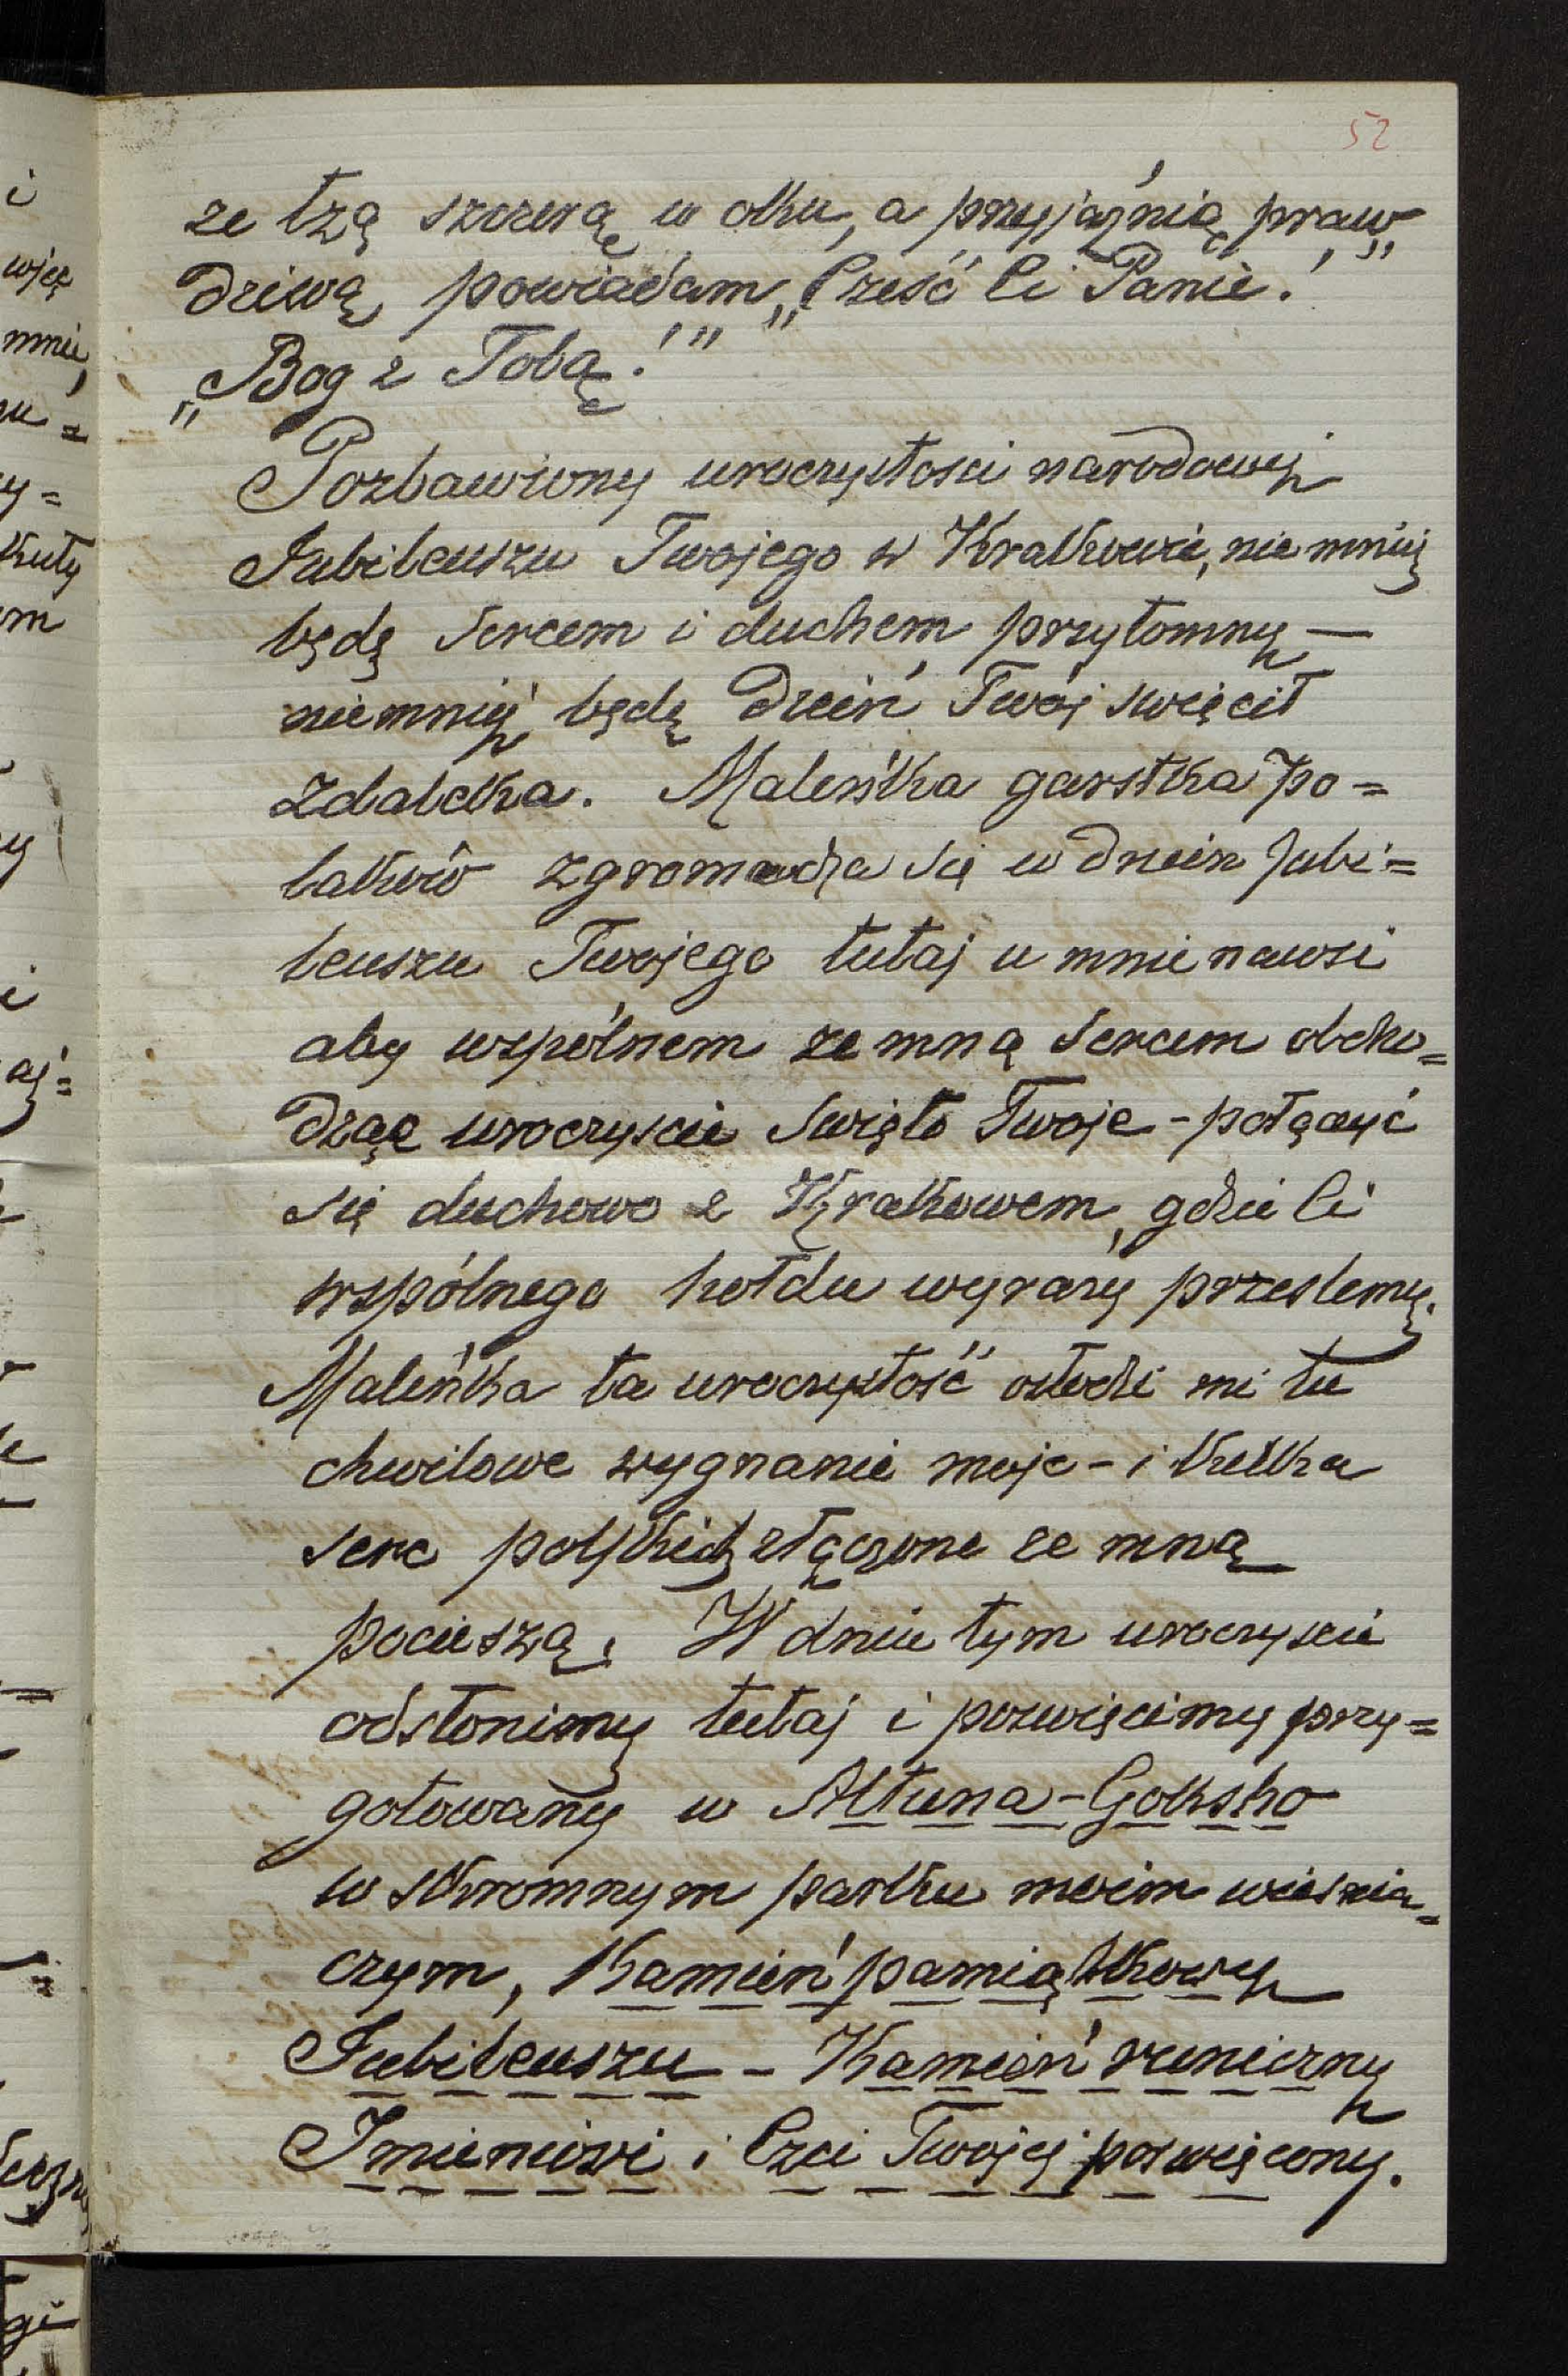 52
ze łzą szczerą w oku, a przyjaźnią praw„
dziwą powiadam „Cześć Ci Panie!"
„Bog z Tobą!"
Pozbawiony uroczystosci narodowej
Jubileuszu Twojego w Krakowie, nie mniej
będę sercem i duchem przytomny —
niemniej będę Dzień Twój swięcił
zdaleka. Maleńka garstka Po=
laków zgromadza się w dzien Jubi=
leuszu Twojego tutaj u mnie nawsi
aby wspólnem ze mną sercem obcho=
dząc uroczyscie Swięto Twoje - połączyć
się duchowo z Krakowem, gdzie Ci
wspólnego hołdu wyrazy przeslemy.
Maleńka ta uroczystość osłodzi mi tu
chwilowe wygnanie moje - i kilka
serc polskich złączone ze mną
pocieszą. W dniu tym uroczyscie
odsłonimy tutaj i poswięcimy przy=
gotowany w Altuna-Goksho
w skromnym parku moim wiesnia=
czym, Kamień pamiątkowy
Jubileuszu - Kamień runiczny
Imieniowi i Czci Twojej poswięcony.
i
mnie,
y=
kuty
m
y
i
aj=
gi